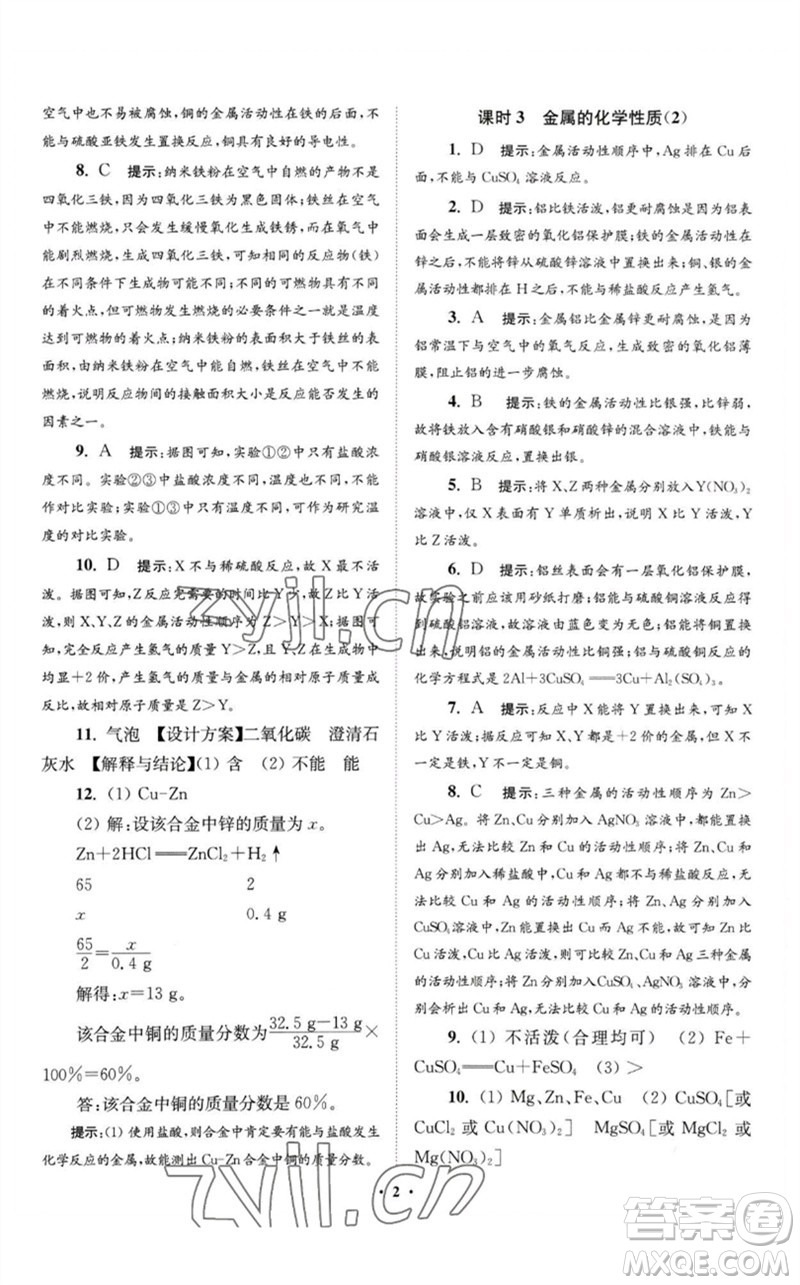 空气中也不易被腐蚀,铜的金属活动性在铁的后面,不
能与硫酸亚铁发生置换反应,铜具有良好的导电性。
8. C 提示:纳米铁粉在空气中自燃的产物不是
四氧化三铁,因为四氧化三铁为黑色固体;铁丝在空气
中不能燃烧,只可以发生缓慢氧化生成铁锈,在氧气中
能剧烈燃烧,生成四氧化三铁,可知相同的反应物(铁)
在不同条件下生成物可能不同;不同的可燃物有不同
的着火点,且可燃物燃烧的必要条件之一就是温度
达到可燃物的着火点;纳米铁粉在空气中能自燃,铁丝
达到红热的程度也不能在空气中燃烧,在氧气中可以
燃烧,说明反应物间的接触面积大小是反应能否发生的
因素之一。
9. A 提示:据图可知,实验①②中只有盐酸浓
度不同。实验②③中盐酸浓度不同、温度不同,不能
作对比实验;实验①③中只有温度不同,可作为研究温
度的对比实验。
10. D 提示:X不与稀硫酸反应,故X最不活
泼。据图可知,Z反应完需要的时间比Y少,故Z比Y
活泼,故X、Y、Z的金属活动性顺序为Z>Y>X;由图
可知,完全反应产生氢气的质量Y>Z,且金属化合价
均显+2价,产生氢气的质量与金属的相对原子质量成
反比,故相对原子质量是Z>Y。
11. 气泡 【设计方案】二氧化碳 澄清石
灰水 【解释与结论】(1) 含 (2) 不能 能
12. (1) Cu-Zn
(2) 解:设该合金中锌的质量为x。
Zn+2HCl══ZnCl₂+H₂↑
65 2
x 0.4 g
65/2=x/0.4 g
解得:x=13 g。
该合金中铜的质量分数为(32.5 g-13 g)/32.5 g×
100%=60%。
答:该合金中铜的质量分数是60%。
提示:(1) 使用盐酸,则合金中肯定要有能与盐酸发生
化学反应的金属,故能测出Cu-Zn合金中铜的质量分数。
课时3 金属的化学性质(2)
1. D 提示:金属活动性顺序中,Ag排在Cu后
面,不能与CuSO₄溶液反应。
2. D 提示:铝比铁活泼,铝更耐腐蚀是因为铝表
面会生成一层致密的氧化铝保护膜;铁的金属活动性在
锌之后,不能将锌从硫酸锌溶液中置换出来;铜、银的金
属活动性都排在H之后,不能与稀盐酸反应产生氢气。
3. A 提示:金属铝比金属锌更耐腐蚀,是因为
铝常温下与空气中的氧气反应,生成致密的氧化铝薄
膜,阻止铝进一步腐蚀。
4. B 提示:铁的金属活动性比银强,比锌弱,
故将铁放入含有硝酸锌和硝酸银的混合溶液中,铁能与
硝酸银溶液反应,置换出银。
5. B 提示:将X、Z两种金属分别放入Y(NO₃)₂
溶液中,仅X表面有Y单质析出,说明X比Y活泼,Y
比Z活泼。
6. D 提示:铝丝表面会有一层氧化铝保护膜,
故实验之前应该用砂纸打磨;铝与硫酸铜溶液反应得
到硫酸铝溶液,故溶液由蓝色变为无色;铝能将铜置换
出来,故铝比铜的金属活动性强;铝与硫酸铜反应的
化学方程式为2Al+3CuSO₄══3Cu+Al₂(SO₄)₃。
7. A 提示:X可以将Y置换出来,故X比Y
的金属活动性强;反应前后,X的化合价都是+2价;X
不一定是铁,Y不一定是铜。
8. C 提示:三种金属的活动性顺序为Zn>
Cu>Ag。将Zn、Cu分别加入AgNO₃溶液中,都能置换
出Ag,无法比较Zn和Cu的活动性顺序;将Zn、Cu、Ag
分别加入稀盐酸中,Cu和Ag都不与稀盐酸反应,故
无法比较Cu和Ag的活动性顺序;将Zn、Ag分别加入
CuSO₄溶液中,Zn能置换出Cu而Ag不能,则可知Zn
比Cu活泼,Cu比Ag活泼,则可比较三种金属的活动性
顺序;将Cu、Ag分别加入ZnSO₄溶液中,Cu和Ag都不
反应,无法比较Cu和Ag的活动性顺序;将Zn分别加入
CuSO₄、AgNO₃溶液中,分别会析出Cu和Ag,但是不
会析出Cu和Ag的活动性顺序。
9. (1) 不活泼(合理均可) (2) Fe+
CuSO₄══Cu+FeSO₄ (3) >
10. (1) Mg、Zn、Fe、Cu (2) CuSO₄[或
CuCl₂ 或 Cu(NO₃)₂] MgSO₄[或 MgCl₂ 或
Mg(NO₃)₂]
· 2 ·
zyjl.cn
zyjl.cn
答案卷
MXQE.COM